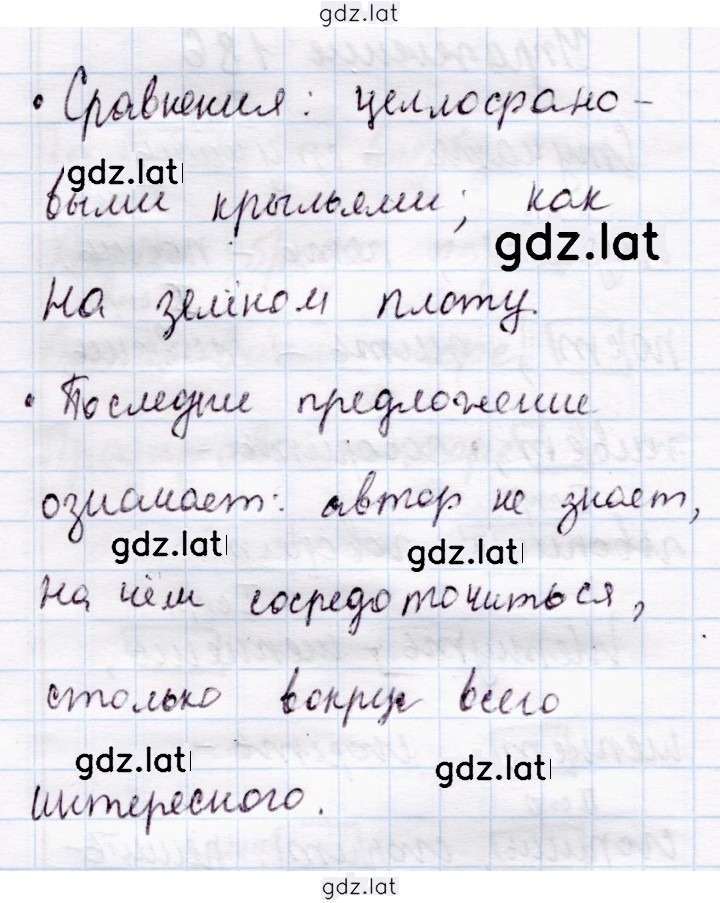 gdz.lat
• Сравнения: целлофано-
gdz.lat
выми крыльями; как
gdz.lat
на зелёном плоту.
• Последние предложение
означает: автор не знает,
gdz.lat gdz.lat
на чём сосредоточиться,
столько вокруг всего
gdz.lat gdz.lat
интересного.
gdz.lat